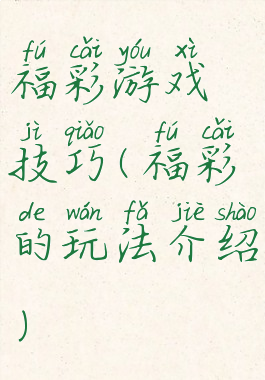 fú cǎi yóu xì
福彩游戏
jì qiǎo fú cǎi
技巧(福彩
de wán fǎ jiè shào
的玩法介绍
)